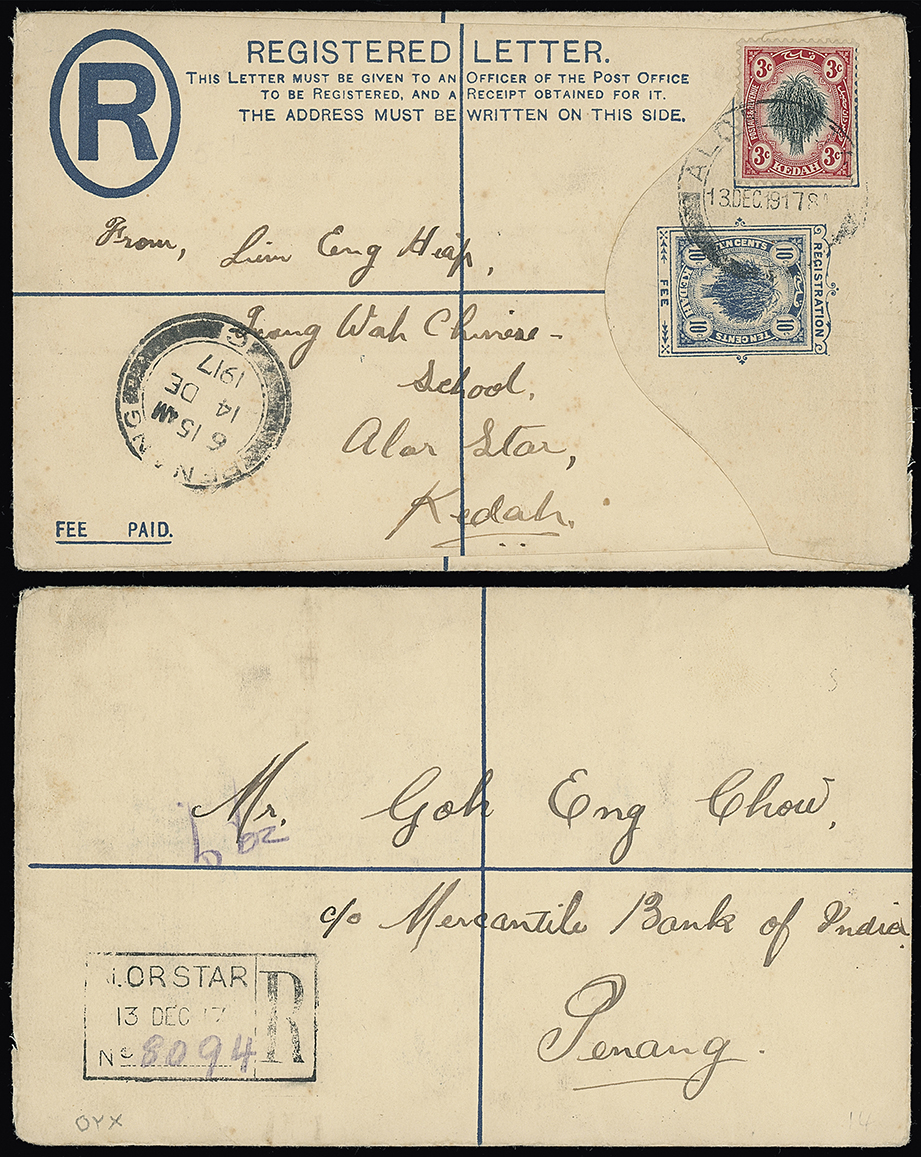 REGISTERED LETTER.
THIS LETTER MUST BE GIVEN TO AN OFFICER OF THE POST OFFICE
TO BE REGISTERED, AND A RECEIPT OBTAINED FOR IT.
THE ADDRESS MUST BE WRITTEN ON THIS SIDE.
R
3c 3c
3c KEDAH 3c
13.DEC.1917
From, Lim Eng Hiap,
Wah Chinese-
School,
Alor Star,
Kedah.
REGISTRATION
FEE
TEN CENTS
10c 10c
KEDAH
10c 10c
TEN CENTS
PENANG
6 15 AM
14 DE
1917
FEE PAID.
Mr. Goh Eng Chow,
c/o Mercantile Bank of India
Penang.
LOR STAR
13 DEC 17
No 8094
R
OYX
14